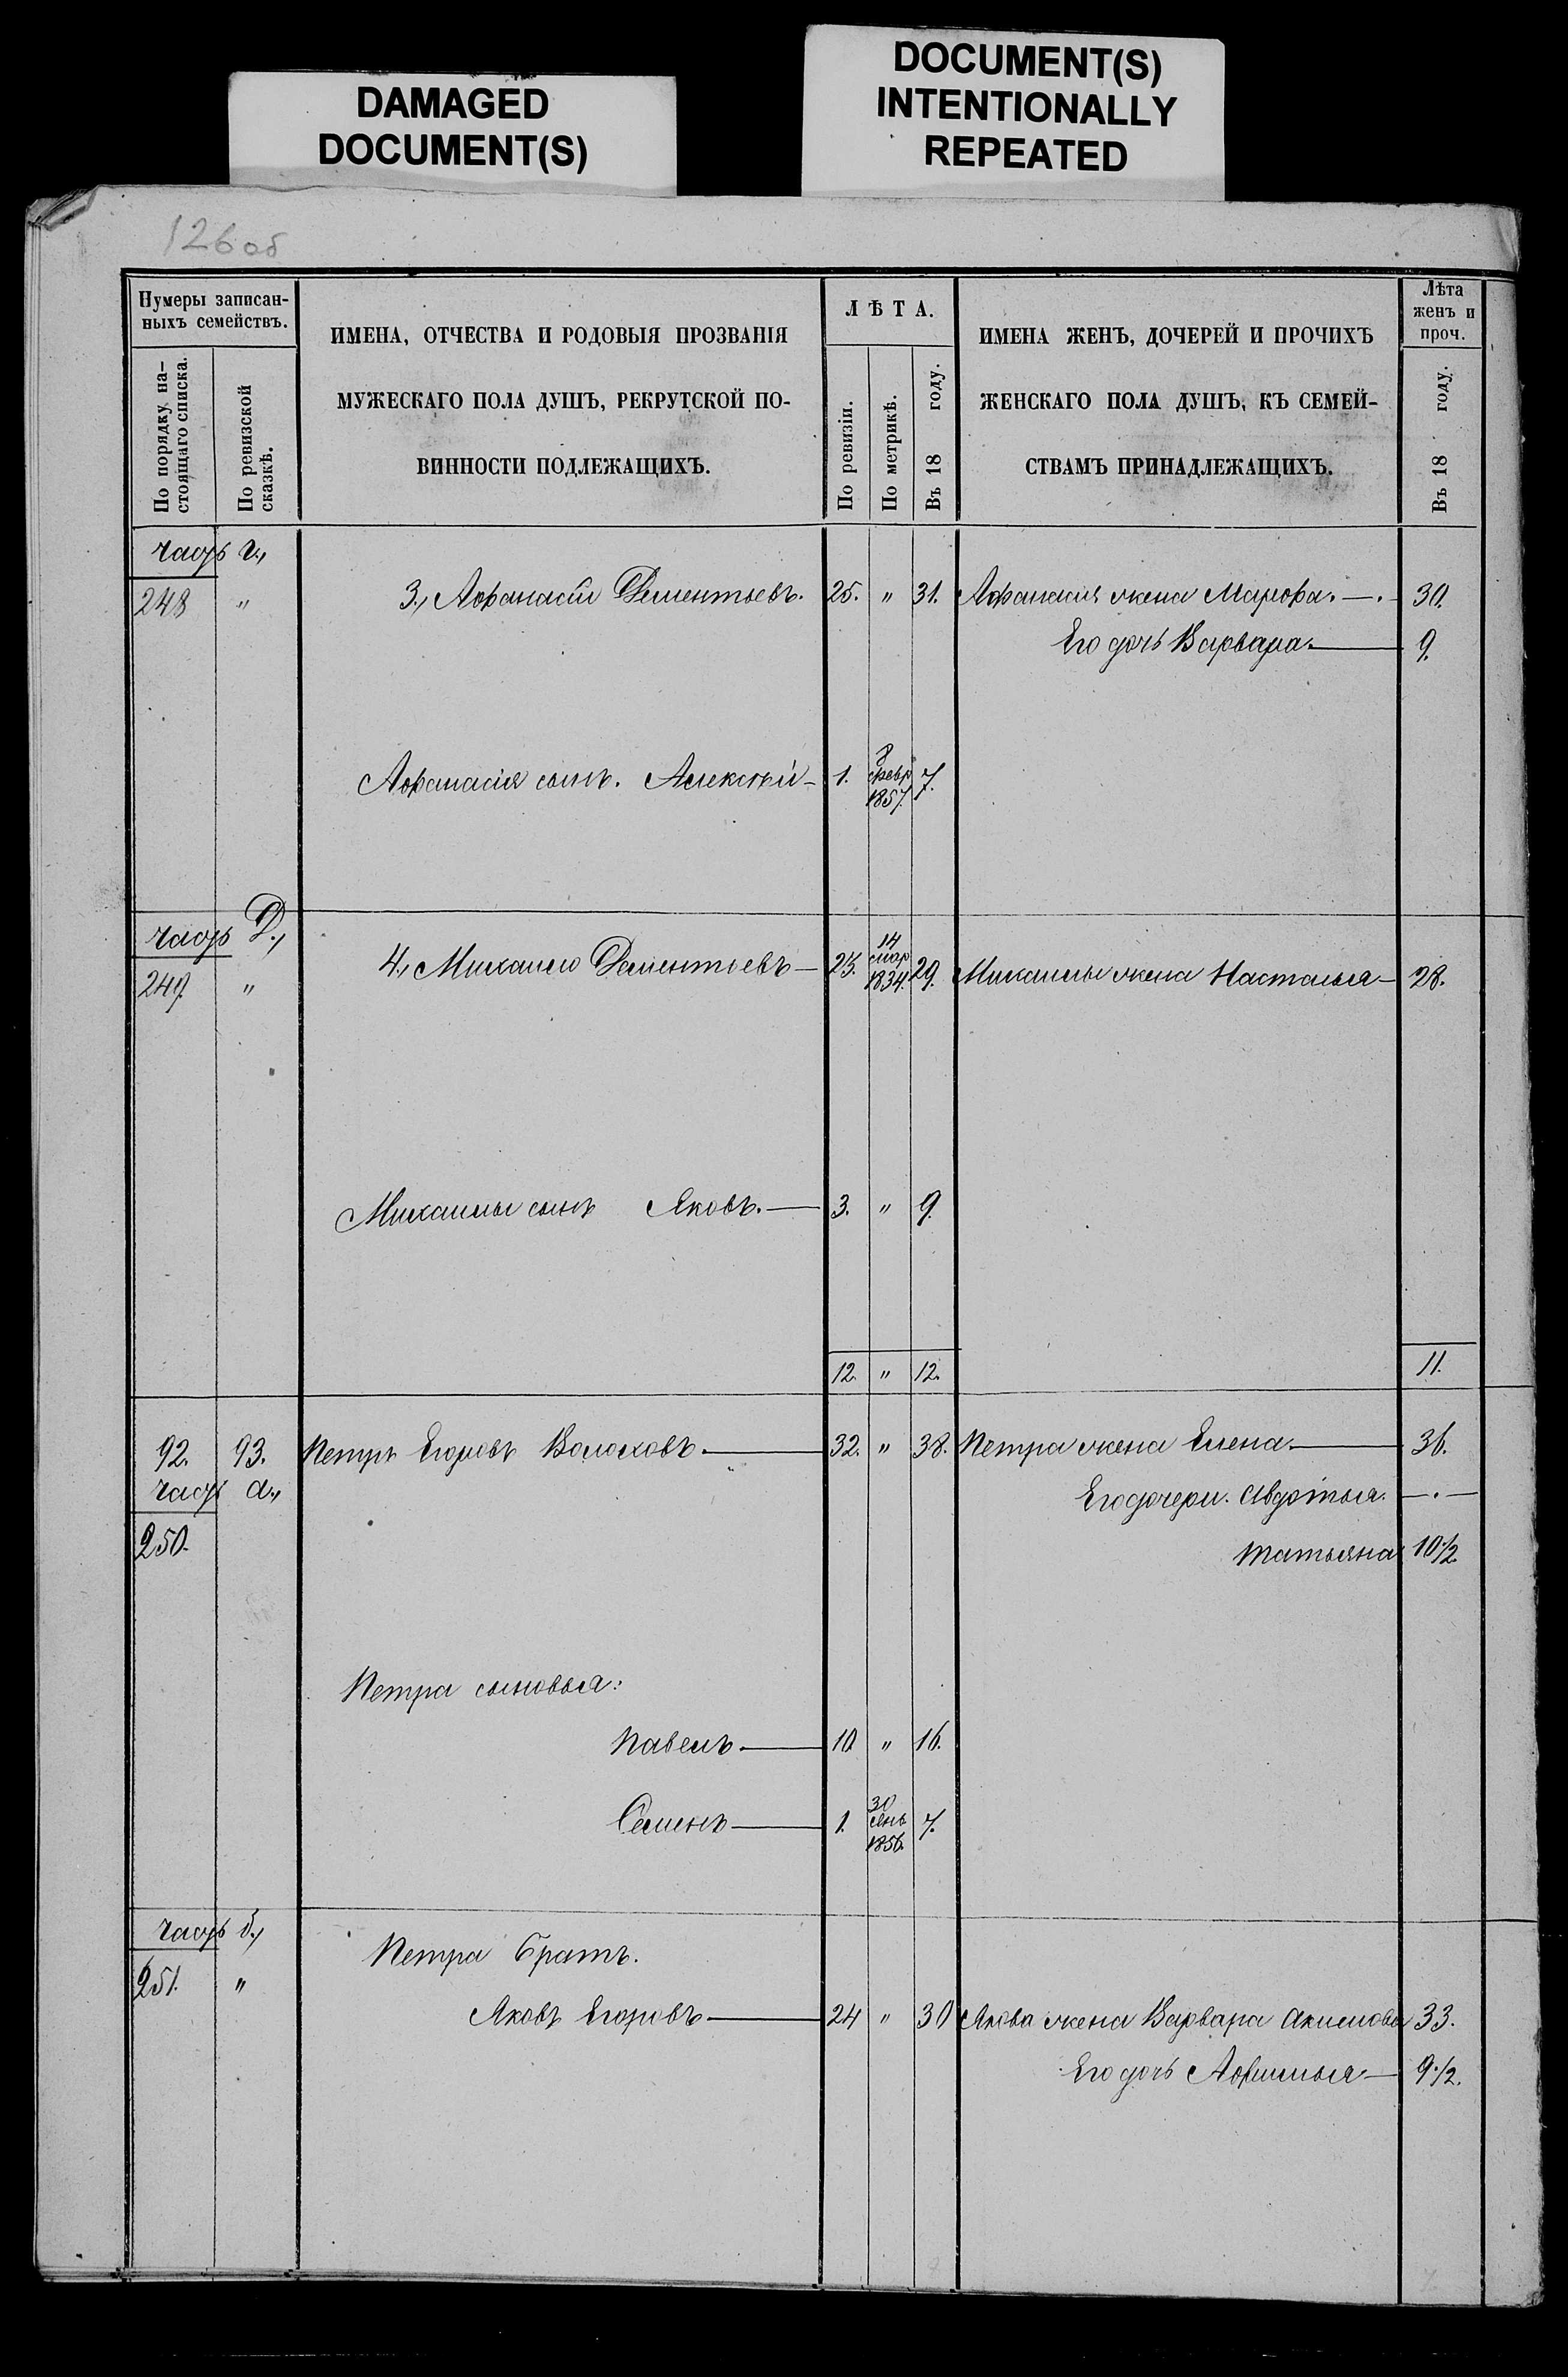 DAMAGED
DOCUMENT(S)
DOCUMENT(S)
INTENTIONALLY
REPEATED
126 об
Нумеры записан-
ныхъ семействъ.
По порядку на-
стоящаго списка.
По ревизской
сказкѣ.
ИМЕНА, ОТЧЕСТВА И РОДОВЫЯ ПРОЗВАНІЯ
МУЖЕСКАГО ПОЛА ДУШЪ, РЕКРУТСКОЙ ПО-
ВИННОСТИ ПОДЛЕЖАЩИХЪ.
ЛѢТА.
По ревизіи.
По метрикѣ.
Въ 18 году.
ИМЕНА ЖЕНЪ, ДОЧЕРЕЙ И ПРОЧИХЪ
ЖЕНСКАГО ПОЛА ДУШЪ, КЪ СЕМЕЙ-
СТВАМЪ ПРИНАДЛЕЖАЩИХЪ.
Лѣта
женъ и
проч.
Въ 18 году.
часть г.,
248 " 3., Афанасій Дементьевъ. 25. " 31. Афанасія жена Марфа. — . — 30.
Его дочь Варвара. — 9.
Афанасія сынъ. Алексѣй — 1. 8 февр 1857. 7.
часть Д.,
249. " 4., Михаило Дементьевъ — 23. 14 мар 1834. 29. Михаилы жена Настасья — 28.
Михаилы сынъ Яковъ. — 3. " 9.
12. " 12. 11.
92. 93. Петръ Егоровъ Волоховъ. — 32. " 38. Петра жена Елена. — 36.
часть а.,
Его дочери. Авдотья. — . —
250.
Татьяна 10 1/2.
Петра сыновья:
Павелъ. — 10 " 16.
Семенъ — 1. 30 Янв 1856. 7.
часть б.,
Петра Братъ.
251. "
Яковъ Егоровъ — 24 " 30 Якова жена Варвара Акимова 33.
Его дочь Афимья — 9 1/2.